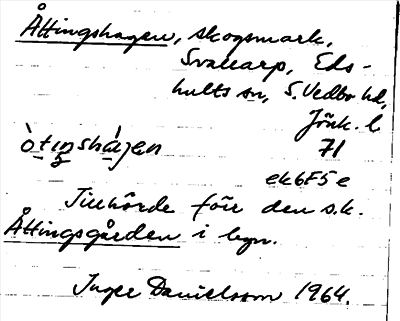 Åttingshagen, skogsmark,
Svallarp, Eds-
hults sn, S. Vedbo hd,
Jönk. l
71
ek6F5e
Tillhörde förr den s.k.
Åttingsgården i byn.
Inger Danielsson 1964.